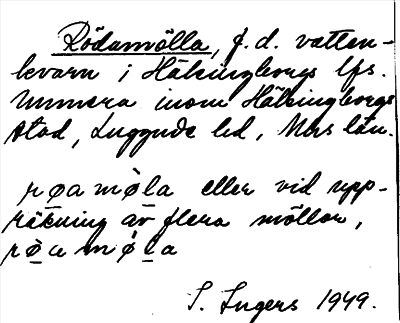 Rödamölla, f.d. vatten-
kvarn i Hälsingborgs lfs.
numera inom Hälsingborgs
stad, Luggude hd, Mhs län.
røamøla eller vid upp-
räkning av flera möllor,
røamøla
S. Ingers 1949.